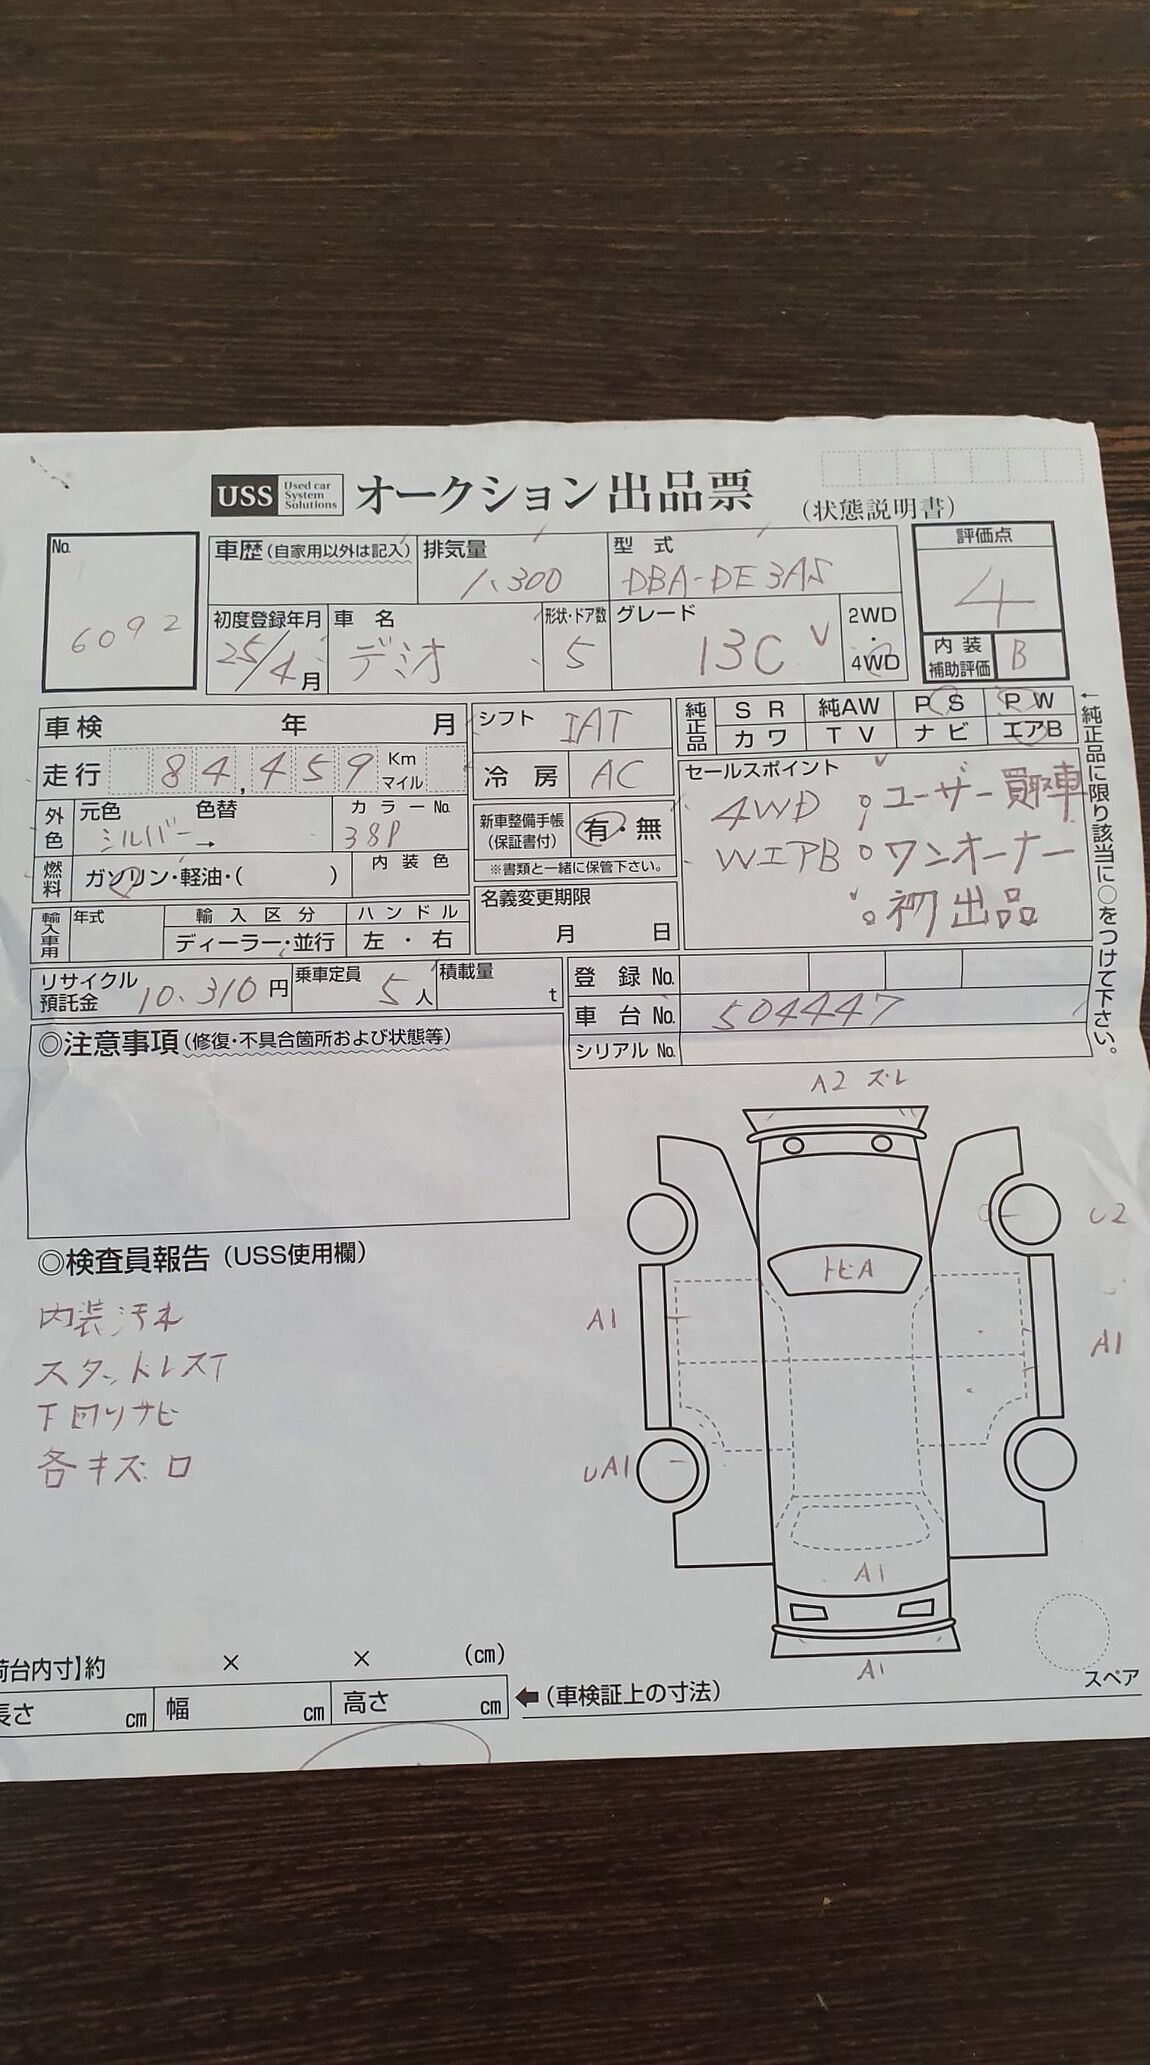 USS Used car System Solutions オークション 出品票 (状態説明書)
No. 6092
車歴 (自家用以外は記入)
排気量 1.300
型式 DBA-DE3AS
評価点 4
初度登録年月 25/4月
車名 デミオ
形状・ドア数 5
グレード 13C V
2WD・4WD
内装補助評価 B
車検 年 月
シフト IAT
純正品 SR 純AW PS PW
カワ TV ナビ エアB
←純正品に限り該当に○をつけて下さい。
走行 84,459 Km マイル
冷房 AC
セールスポイント
4WD ○ユーザー買取車
WエアB ○ワンオーナー
○初出品
外色 元色 シルバー → 色替
カラーNo. 38P
新車整備手帳(保証書付) 有・無
※書類と一緒に保管下さい。
燃料 ガソリン・軽油・( )
内装色
名義変更期限 月 日
輸入車用 年式
輸入区分 ディーラー・並行
ハンドル 左・右
リサイクル預託金 10.310円
乗車定員 5人
積載量 t
登録No.
車台No. 504447
シリアルNo.
◎注意事項(修復・不具合箇所および状態等)
A2 ズレ
U2
トビA
A1
A1
UA1
A1
A1
◎検査員報告(USS使用欄)
内装汚れ
スタッドレスT
下回りサビ
各キズロ
荷台内寸】約 × × (cm)
長さ cm 幅 cm 高さ cm ←(車検証上の寸法)
スペア